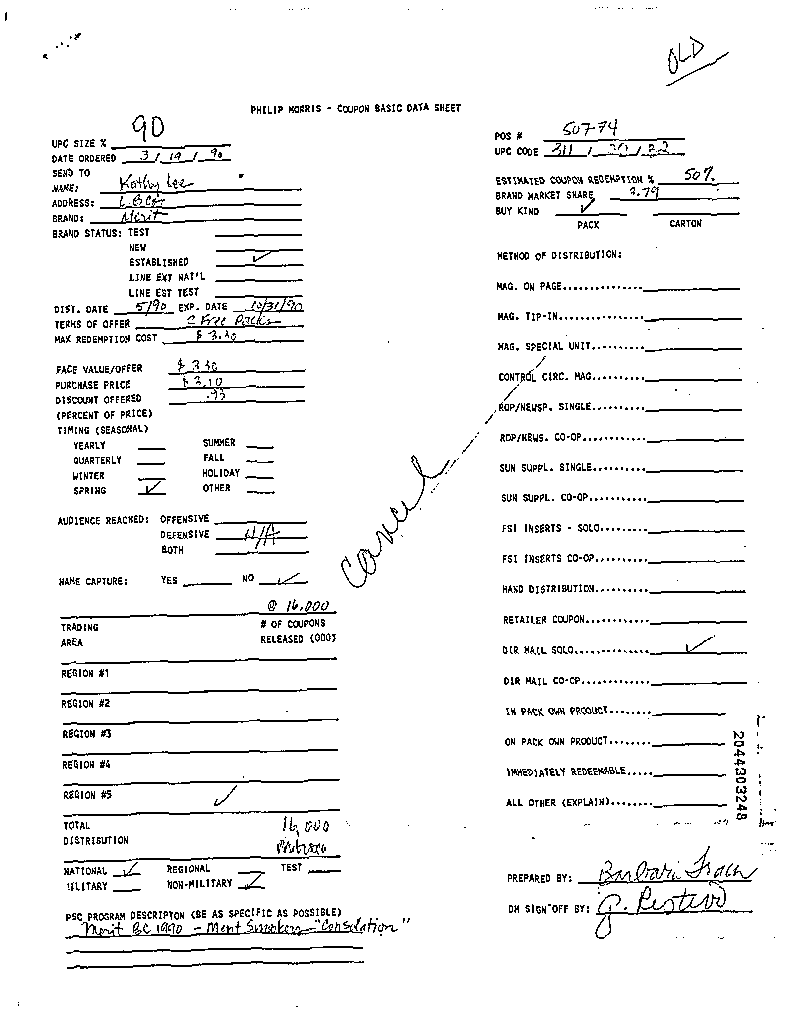 OLD
PHILIP MORRIS - COUPON BASIC DATA SHEET
UPC SIZE % 90
DATE ORDERED 3/19/90
SEND TO
NAME: Kathy Lee
ADDRESS: L.B.Co.
BRAND: Merit
BRAND STATUS: TEST
NEW
ESTABLISHED ✓
LINE EXT NAT'L
LINE EST TEST
DIST. DATE 5/90 EXP. DATE 10/31/90
TERMS OF OFFER 2 Free Packs
MAX REDEMPTION COST $ 3.30
FACE VALUE/OFFER $ 3.30
PURCHASE PRICE $ 3.10
DISCOUNT OFFERED .93
(PERCENT OF PRICE)
TIMING (SEASONAL)
YEARLY SUMMER
QUARTERLY FALL
WINTER HOLIDAY
SPRING ✓ OTHER
AUDIENCE REACHED: OFFENSIVE
DEFENSIVE N/A
BOTH
NAME CAPTURE: YES NO ✓
@ 16,000
TRADING # OF COUPONS
AREA RELEASED (000)
REGION #1
REGION #2
REGION #3
REGION #4
REGION #5 ✓
TOTAL 16,000
DISTRIBUTION
NATIONAL ✓ REGIONAL TEST
MILITARY NON-MILITARY ✓
PSC PROGRAM DESCRIPTON (BE AS SPECIFIC AS POSSIBLE)
Merit BC 1990 - Merit Smokers "Consolation"
Cancel
POS # 507-74
UPC CODE 311 / 20 / 22
ESTIMATED COUPON REDEMPTION % 50%
BRAND MARKET SHARE 3.79
BUY KIND ✓
PACK CARTON
METHOD OF DISTRIBUTION:
MAG. ON PAGE...............
MAG. TIP-IN................
MAG. SPECIAL UNIT..........
CONTROL CIRC. MAG..........
ROP/NEWSP. SINGLE..........
ROP/NEWS. CO-OP............
SUN SUPPL. SINGLE..........
SUN SUPPL. CO-OP...........
FSI INSERTS - SOLO.........
FSI INSERTS CO-OP..........
HAND DISTRIBUTION..........
RETAILER COUPON............
DIR MAIL SOLO.............. ✓
DIR MAIL CO-OP.............
IN PACK OWN PRODUCT........
ON PACK OWN PRODUCT........
IMMEDIATELY REDEEMABLE.....
ALL OTHER (EXPLAIN)........
2044303248
PREPARED BY: Barbara
DM SIGN OFF BY: J. Restivo